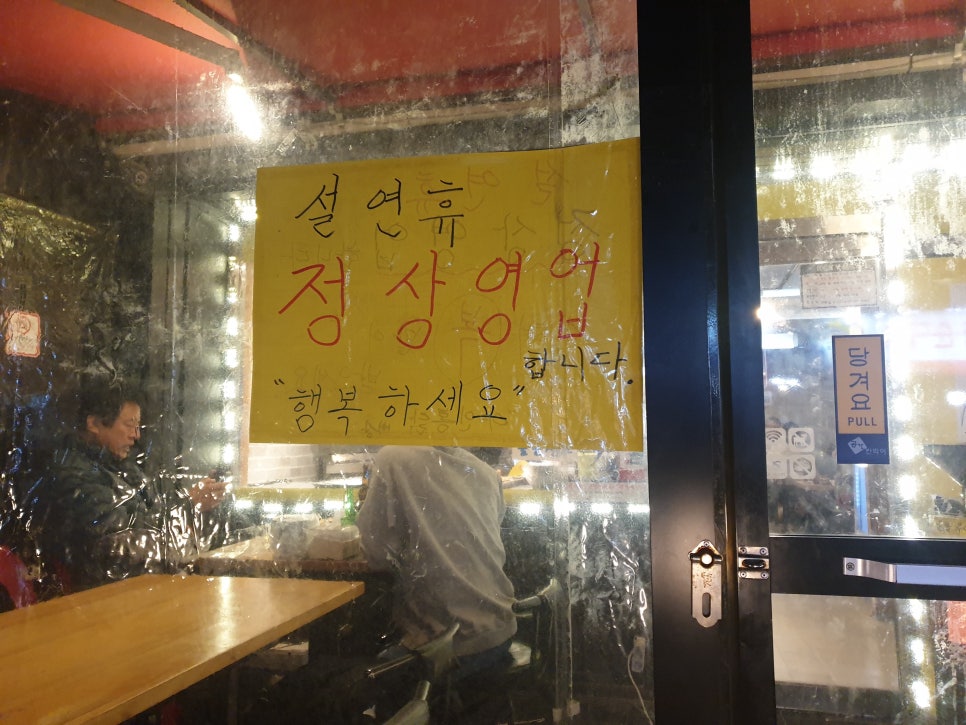 설 연휴
정상영업
합니다.
"행복하세요"
당겨요
PULL